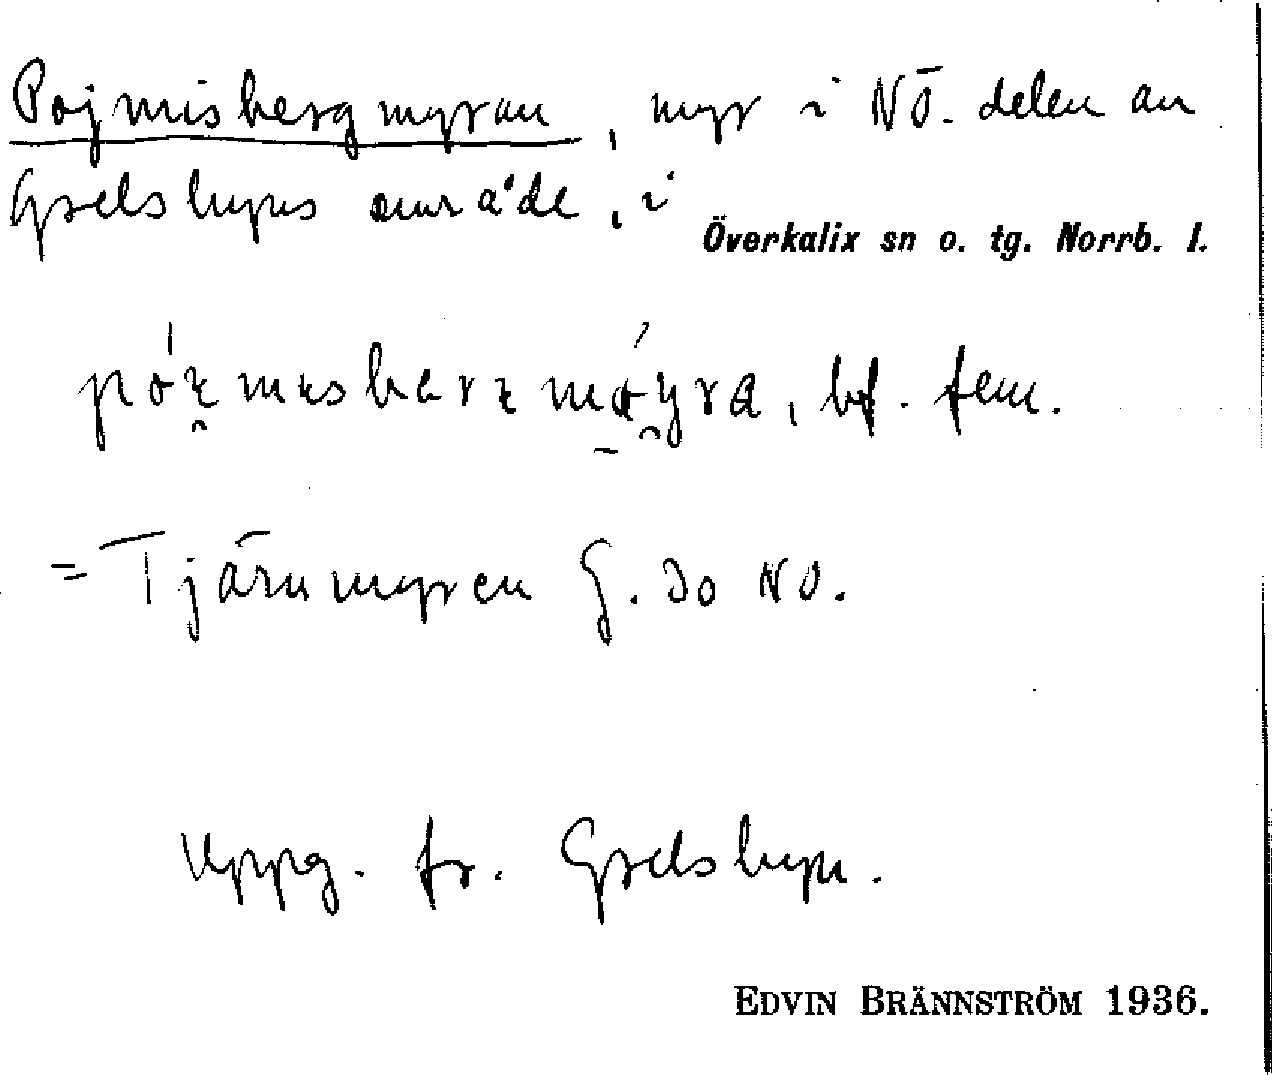 Pojmisbergmyran, myr i NÖ. delen av
Grelsbyns område, i
Överkalix sn o. tg. Norrb. l.
bf. fem.
= Tjärnmyren G. 30 NO.
Uppg. fr. Grelsbyn.
EDVIN BRÄNNSTRÖM 1936.